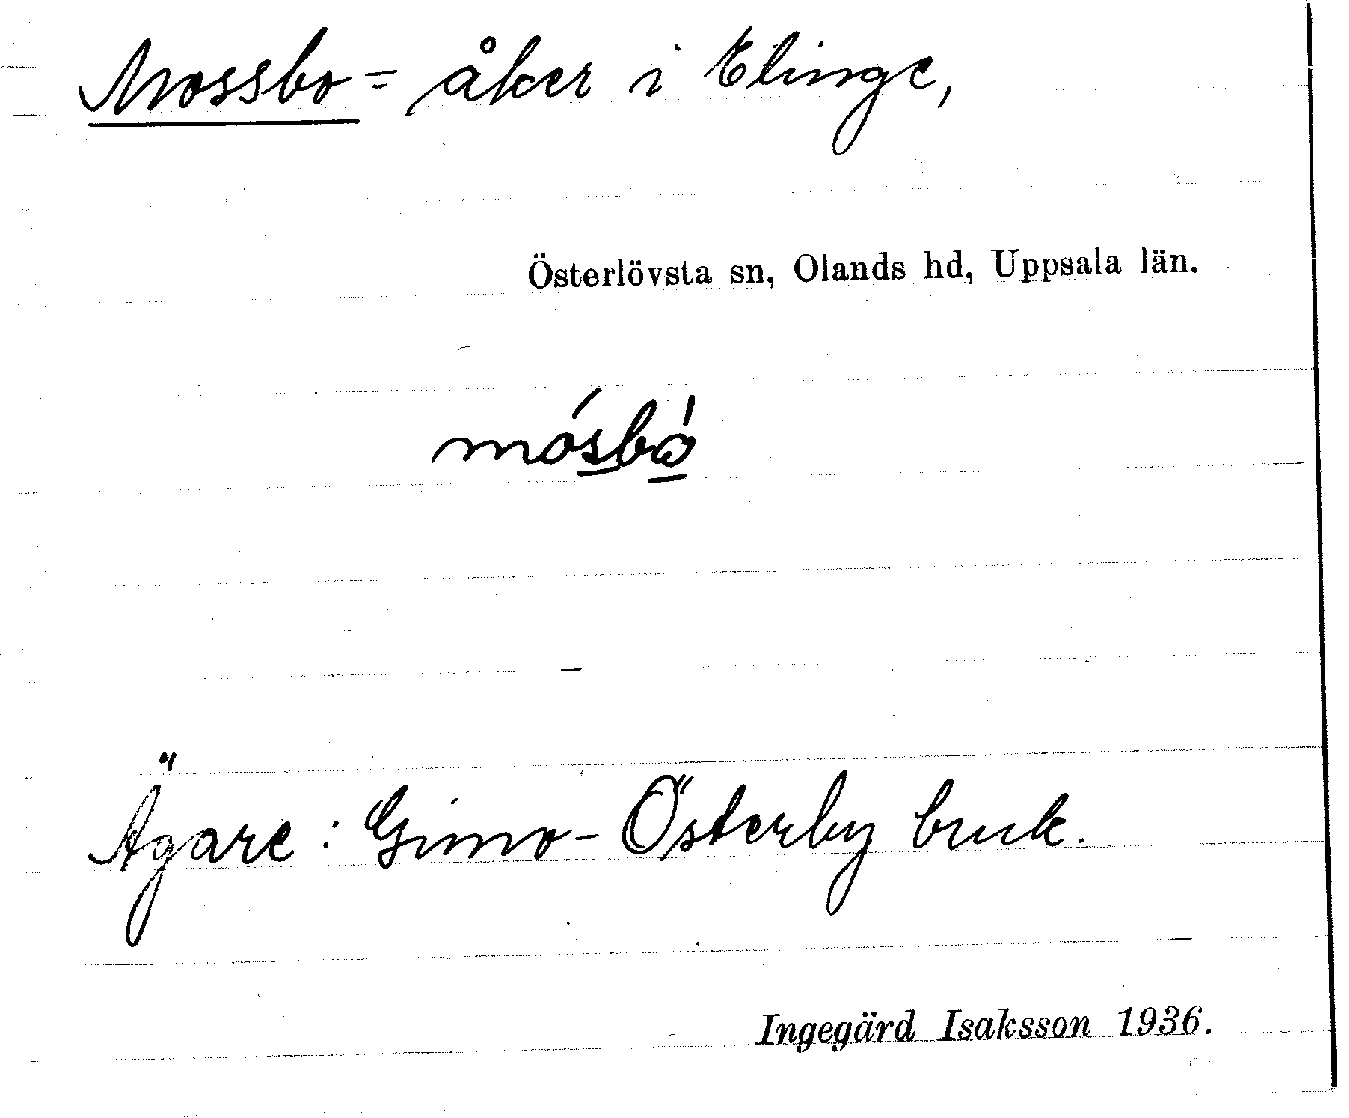 Mossbo = åker i Elinge,
Österlövsta sn, Olands hd, Uppsala län.
mósbó
Ägare: Gimo-Österby bruk.
Ingegärd Isaksson 1936.